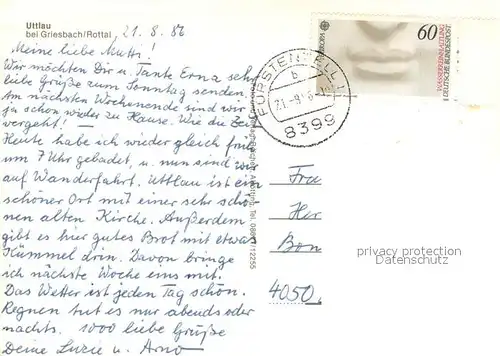 Uttlau
bei Griesbach/Rottal
21. 8. 86
Meine liebe Mutti!
Wir möchten Dir u. Tante Erna sehr
liebe Grüße zum Sonntag senden.
Am nächsten Wochenende sind wir
ja schon wieder zu Hause. Wie die Zeit
vergeht!
Heute habe ich wieder gleich früh
um 7 Uhr gebadet, u. nun sind wir
auf Wanderfahrt. Uttlau ist ein
schöner Ort mit einer sehr schö-
nen alten Kirche. Außerdem
gibt es hier gutes Brot mit etwas
Kümmel drin. Davon bringe
ich nächste Woche eins mit.
Das Wetter ist jeden Tag schön.
Regnen tut es nur abends oder
nachts. 1000 liebe Grüße
Deine Luzie u. Arno
EUROPA
60
WASSERREINHALTUNG
DEUTSCHE BUNDESPOST
FÜRSTENZELL 1
b
8399
Frau
Her
Bon
4050
privacy protection
Datenschutz